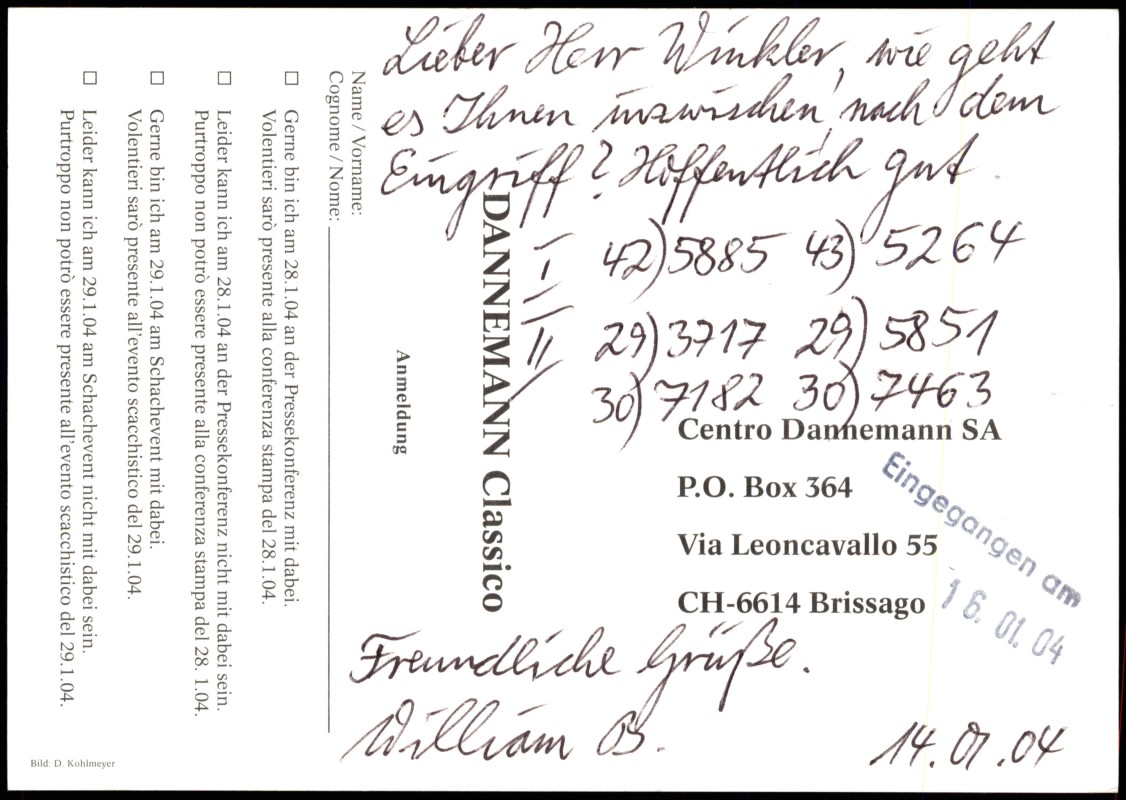 Lieber Herr Winkler, wie geht
es Ihnen inzwischen, nach dem
Eingriff? Hoffentlich gut.
I 42) 5885 43) 5264
II 29) 3717 29) 5851
30) 7182 30) 7463
Centro Dannemann SA
P.O. Box 364
Via Leoncavallo 55
CH-6614 Brissago
Eingegangen am
16. 01. 04
Freundliche Grüße.
William B. 14.01.04
DANNEMANN Classico
Anmeldung
Name / Vorname:
Cognome / Nome:
☐ Gerne bin ich am 28.1.04 an der Pressekonferenz mit dabei.
Volentieri sarò presente alla conferenza stampa del 28.1.04.
☐ Leider kann ich am 28.1.04 an der Pressekonferenz nicht mit dabei sein.
Purtroppo non potrò essere presente alla conferenza stampa del 28. 1.04.
☐ Gerne bin ich am 29.1.04 am Schachevent mit dabei.
Volentieri sarò presente all'evento scacchistico del 29.1.04.
☐ Leider kann ich am 29.1.04 am Schachevent nicht mit dabei sein.
Purtroppo non potrò essere presente all'evento scacchistico del 29.1.04.
Bild: D. Kohlmeyer